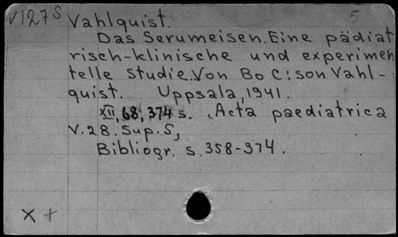 V127S Vahlquist. 5
Das Serumeisen. Eine pädiat
risch-klinische und experimen
telle Studie. Von Bo C:son Vahl-
quist. Uppsala, 1941.
XII, 68, 374 s. (Acta paediatrica
V. 28. Sup. 5,
Bibliogr. s. 358-374.
x +